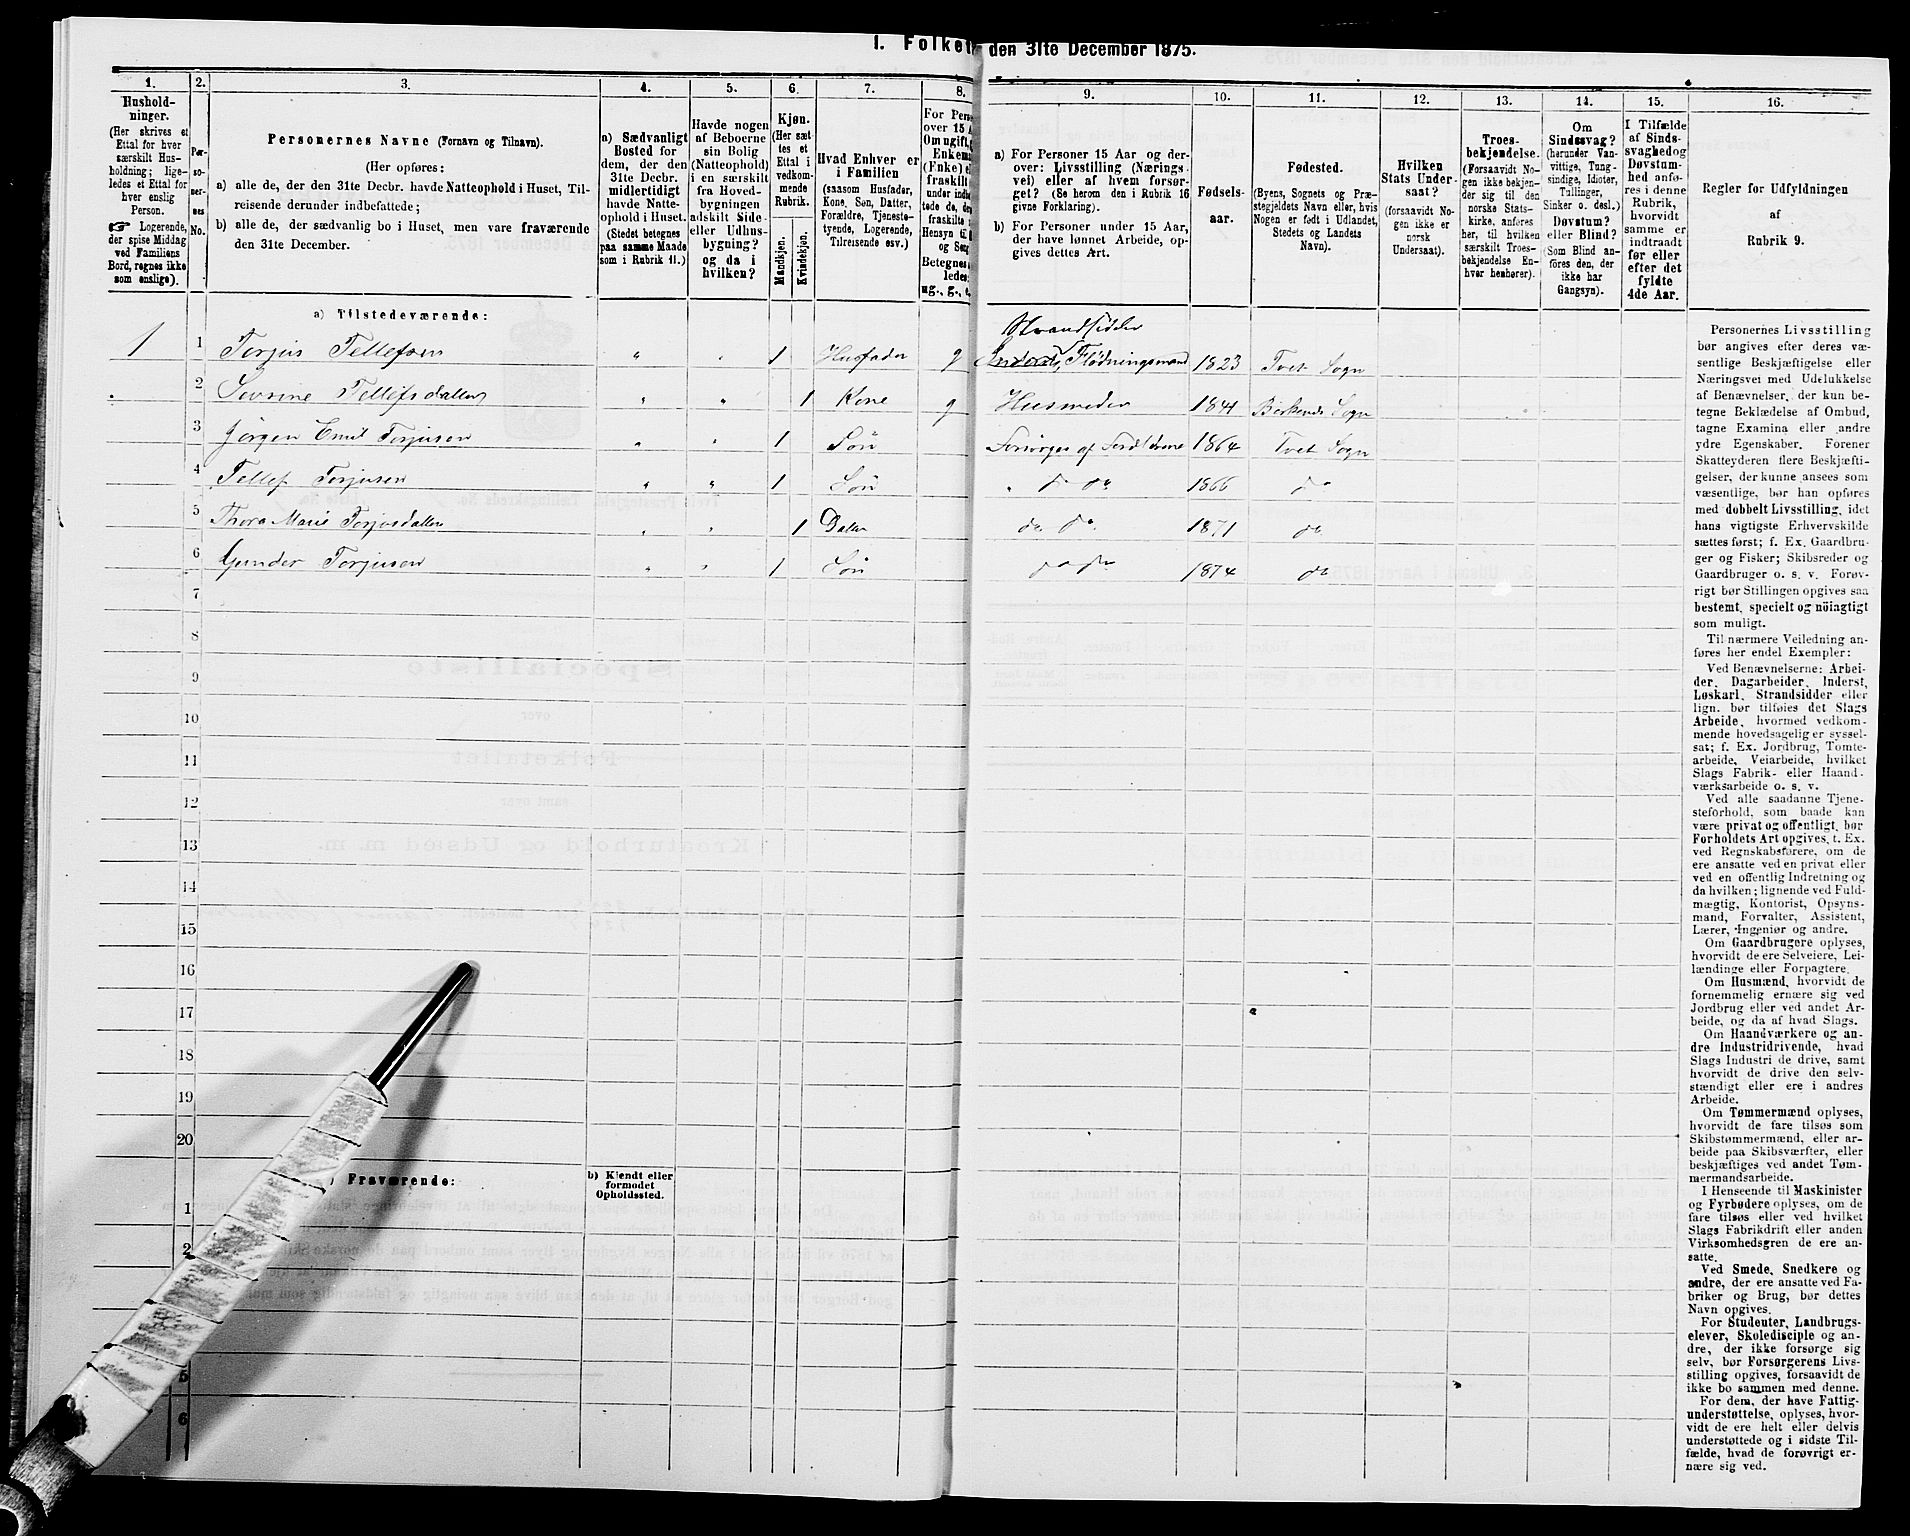 I. Folket
den 31te December 1875.
1.
Hushold-
ninger.
(Her skrives et
Ettal for hver
særskilt Hus-
holdning; lige-
ledes et Ettal for
hver enslig
Person.
☞ Logerende,
der spise Middag
ved Familiens
Bord, regnes ikke
som enslige).
2.
Per-
so-
ner-
nes
No.
3.
Personernes Navne (Fornavn og Tilnavn).
(Her opføres:
a) alle de, der den 31te Decbr. havde Natteophold i Huset, Til-
reisende derunder indbefattede;
b) alle de, der sædvanlig bo i Huset, men vare fraværende
den 31te December.
4.
a) Sædvanligt
Bosted for
dem, der den
31te Decbr.
midlertidigt
havde Natte-
ophold i Huset.
(Stedet betegnes
paa samme Maade
som i Rubrik 11.)
5.
Havde nogen
af Beboerne
sin Bolig
(Natteophold)
i en særskilt
fra Hoved-
bygningen
adskilt Side-
eller Udhus-
bygning?
og da i
hvilken?
6.
Kjøn.
(Her sæt
tes et
Ettal i
vedkom-
mende
Rubrik.
Mandkjøn.
Kvindekjøn.
7.
Hvad Enhver er
i Familien
(saasom Husfader,
Kone, Søn, Datter,
Forældre, Tjeneste-
tyende, Logerende,
Tilreisende osv.)
8.
For Pers
over 15 A
Om ugift,
Enkem
(Enke) e
fraskilt
under indb
tede de, de
fraskilte
Hensyn til
og Sen
Betegnes
ledes:
ug., g., e,
9.
a) For Personer 15 Aar og der-
over: Livsstilling (Nærings-
vei) eller af hvem forsør-
get? (Se herom den i Rubrik 16
givne Forklaring).
b) For Personer under 15 Aar,
der have lønnet Arbeide, op-
gives dettes Art.
10.
Fødsels-
aar.
11.
Fødested.
(Byens, Sognets og Præ-
stegjeldets Navn eller, hvis
Nogen er født i Udlandet,
Stedets og Landets
Navn).
12.
Hvilken
Stats Under-
saat?
(forsaavidt No-
gen ikke er
norsk
Undersaat).
13.
Troes-
bekjendelse.
(Forsaavidt No-
gen ikke bekjen-
der sig til den
norske Stats-
kirke, anføres
her, til hvilken
særskilt Troes-
bekjendelse En-
hver henhører).
14.
Om
Sindssvag?
(herunder Van-
vittige, Tung-
sindige, Idioter,
Tullinger,
Sinker o. desl.)
Døvstum?
eller Blind?
(Som Blind an-
føres den, der
ikke har
Gangsyn).
15.
I Tilfælde
af Sinds-
svaghed og
Døvstum-
hed anfø-
res i denne
Rubrik,
hvorvidt
samme er
indtraadt
før eller
efter det
fyldte
4de Aar.
16.
Regler for Udfyldningen
af
Rubrik 9.
a) Tilstedeværende:
Strandsidder
1 1 Torjus Tellefsen " " 1 Husfader g Inderst, Flödningsmand 1823 Tvet Sogn
2 Sevrine Tellefsdatter " " 1 Kone g Husmoder 1841 Birkenes Sogn
3 Jörgen Emil Torjusen " " 1 Sön Forsörges af Foreldrene 1864 Tvet Sogn
4 Tellef Torjusen " " 1 Sön " do do 1866 do
5 Thora Marie Torjusdatter " " 1 Datter do do 1871 do
6 Gunder Torjusen " " 1 Sön do do 1874 do
7
8
9
10
11
12
13
14
15
16
17
18
19
20
Fraværende:
b) Kjendt eller
formodet
Opholdssted.
1
2
5
6
Personernes Livsstilling
bør angives efter deres væ-
sentlige Beskjæftigelse eller
Næringsvei med Udelukkelse
af Benævnelser, der kun be-
tegne Beklædelse af Ombud,
tagne Examina eller andre
ydre Egenskaber. Forener
Skatteyderen flere Beskjæfti-
gelser, der kunne ansees som
væsentlige, bør han opføres
med dobbelt Livsstilling, idet
hans vigtigste Erhvervskilde
sættes først; f. Ex. Gaardbru-
ger og Fisker; Skibsreder og
Gaardbruger o. s. v. Forøv-
rigt bør Stillingen opgives saa
bestemt, specielt og nöiagtigt
som muligt.
Til nærmere Veiledning an-
føres her endel Exempler:
Ved Benævnelserne: Arbei-
der, Dagarbeider, Inderst,
Løskarl, Strandsidder eller
lign. bør tilføies det Slags
Arbeide, hvormed vedkom-
mende hovedsagelig er syssel-
sat; f. Ex. Jordbrug, Tomte-
arbeide, Veiarbeide, hvilket
Slags Fabrik- eller Haand-
værksarbeide o. s. v.
Ved alle saadanne Tjene-
steforhold, som baade kan
være privat og offentligt, bør
Forholdets Art opgives, t. Ex.
ved Regnskabsførere, om de
ere ansatte ved en privat eller
ved en offentlig Indretning og
da hvilken; lignende ved Fuld-
mægtig, Kontorist, Opsyns-
mand, Forvalter, Assistent,
Lærer, Ingeniør og andre.
Om Gaardbrugere oplyses,
hvorvidt de ere Selveiere, Lei-
lændinge eller Forpagtere.
Om Husmænd, hvorvidt de
fornemmelig ernære sig ved
Jordbrug eller ved andet Ar-
beide, og da af hvad Slags.
Om Haandværkere og an-
dre Industridrivende, hvad
Slags Industri de drive, samt
hvorvidt de drive den selv-
stændigt eller ere i andres
Arbeide.
Om Tømmermænd oplyses,
hvorvidt de fare tilsøs som
Skibstømmermænd, eller ar-
beide paa Skibsværfter, eller
beskjæftiges ved andet Tøm-
mermandsarbeide.
I Henseende til Maskinister
og Fyrbødere oplyses, om de
fare tilsøs eller ved hvilket
Slags Fabrikdrift eller anden
Virksomhedsgren de ere an-
satte.
Ved Smede, Snedkere og
andre, der ere ansatte ved Fa-
briker og Brug, bør dettes
Navn opgives.
For Studenter, Landbrugs-
elever, Skoledisciple og an-
dre, der ikke forsørge sig
selv, bør Forsørgerens Livs-
stilling opgives, forsaavidt de
ikke bo sammen med denne.
For dem, der have Fattig-
understøttelse, oplyses, hvor-
vidt de ere helt eller delvis
understøttede og i sidste Til-
fælde, hvad de forøvrigt er-
nære sig ved.